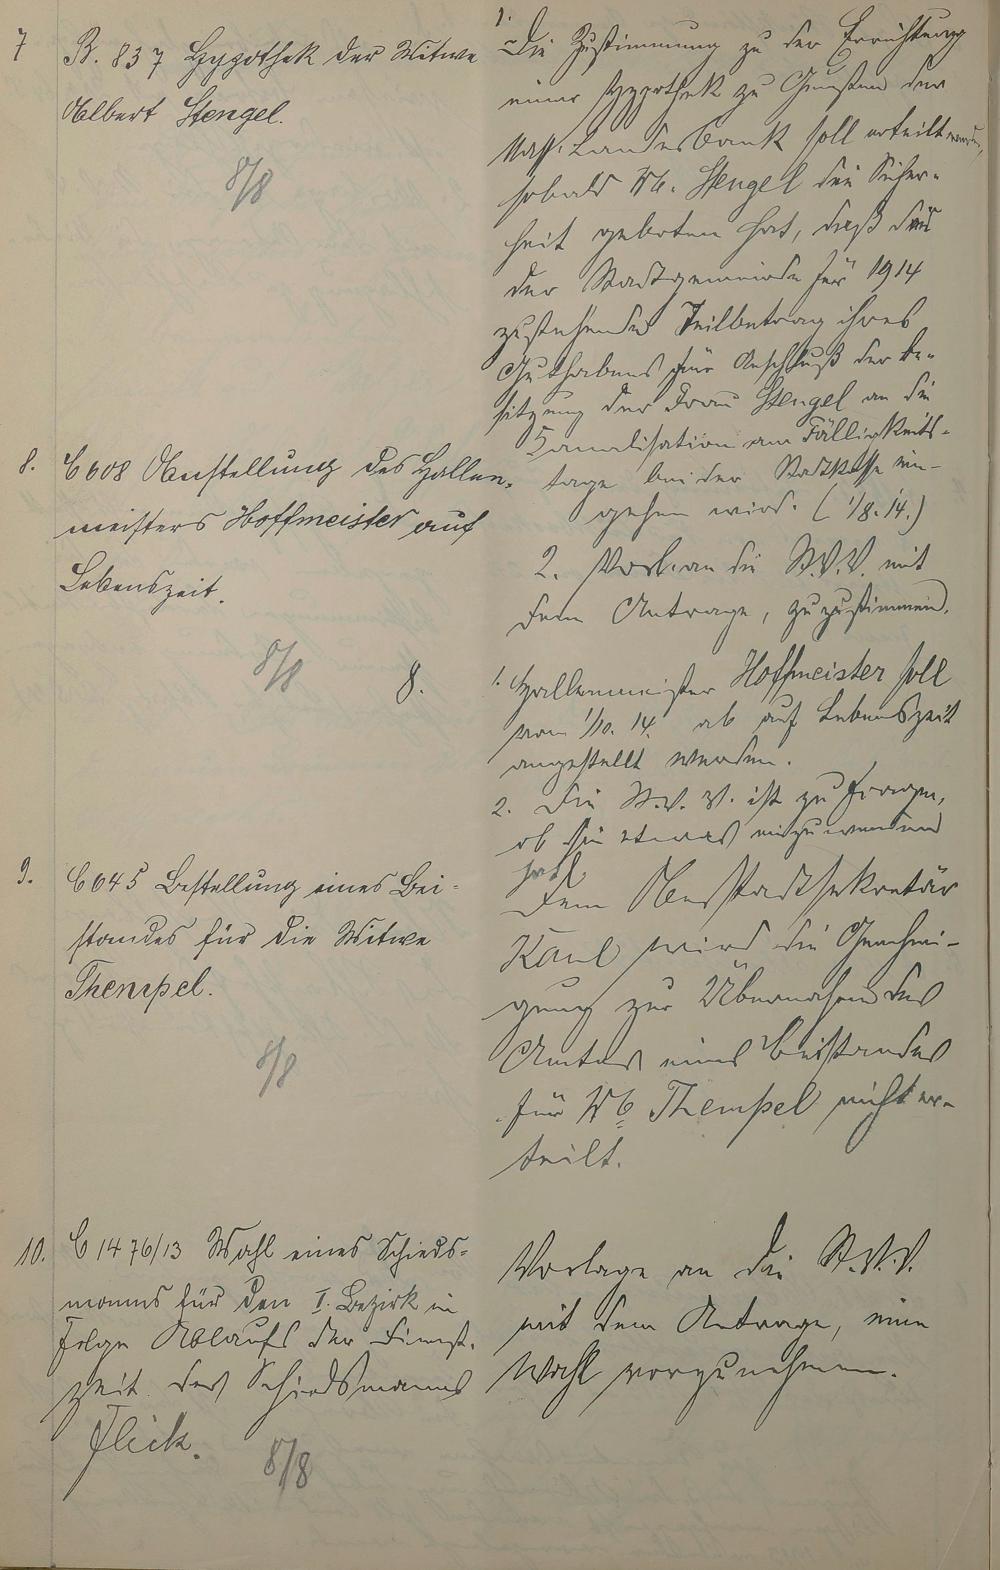 7 B. 837 Hypothek der Witwe
Albert Stengel.
8/8
1. Die Zustimmung zu der Errichtung
einer Hypothek zu Gunsten der
Nass. Landesbank soll erteilt werden,
sobald Ww. Stengel die Sicher-
heit geboten hat, daß der
der Stadtgemeinde für 1914
zustehende Teilbetrag ihres
Guthabens für Anschluß der Be-
sitzung der Frau Stengel an die
Kanalisation am Fälligkeits-
tage bei der Stadtkasse ein-
gehen wird. (1/8.14.)
2. Vorl. an die St.V.V. mit
dem Antrage, zuzustimmen.
8. C 608 Anstellung des Hallen-
meisters Hoffmeister auf
Lebenszeit.
8/8
8. 1. Hallenmeister Hoffmeister soll
vom 1/10. 14. ab auf Lebenszeit
angestellt werden.
2. Die St.V.V. ist zu fragen,
ob sie etwas einzuwenden
hat.
9. C 645 Bestellung eines Bei-
standes für die Witwe
Thempel.
8/8
Dem Oberstadtsekretär
Kaul wird die Genehmi-
gung zur Übernahme des
Amtes eines Beistandes
für Ww Thempel nicht er-
teilt.
10. C 1476/13 Wahl eines Schieds-
manns für den I. Bezirk in
Folge Ablaufs der Dienst-
zeit des Schiedsmanns
Flick.
8/8
Vorlage an die St.V.V.
mit dem Antrage, eine
Wahl vorzunehmen.